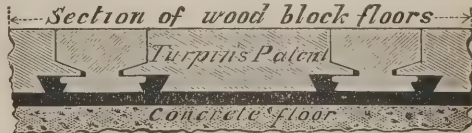 Section of wood block floors
Turpin's Patent
Concrete floor